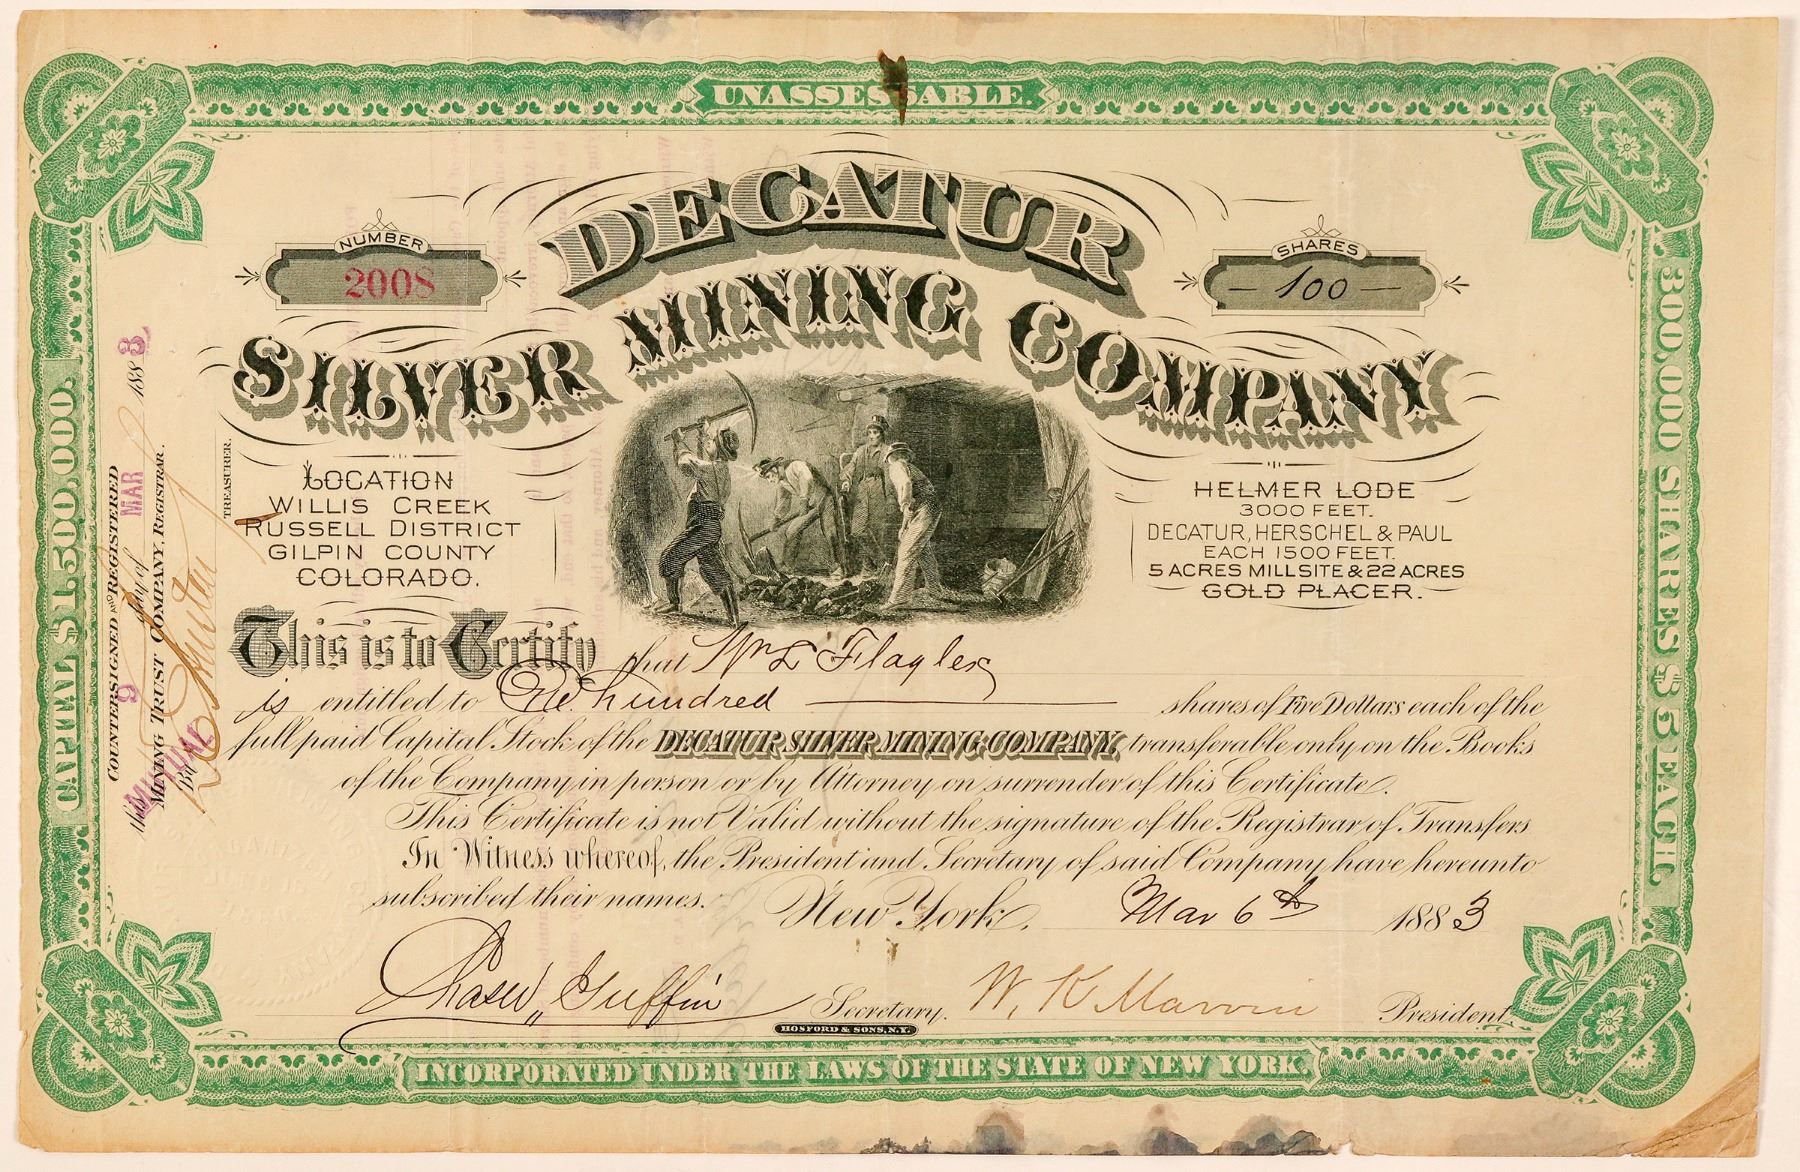 UNASSESSABLE.
DECATUR
SILVER MINING COMPANY
NUMBER
2008
SHARES
— 100 —
LOCATION
WILLIS CREEK
RUSSELL DISTRICT
GILPIN COUNTY
COLORADO.
HELMER LODE
3000 FEET.
DECATUR, HERSCHEL & PAUL
EACH 1500 FEET.
5 ACRES MILLSITE & 22 ACRES
GOLD PLACER.
This is to Certify that Wm L Flagler
is entitled to One hundred shares of Five Dollars each of the
full paid Capital Stock of the DECATUR SILVER MINING COMPANY, transferable only on the Books
of the Company in person or by Attorney on surrender of this Certificate.
This Certificate is not Valid without the signature of the Registrar of Transfers
In Witness whereof, the President and Secretary of said Company have hereunto
subscribed their names. New York, Mar 6th 1883
Secretary. W. K. Marvin President
HOSFORD & SONS, N.Y.
INCORPORATED UNDER THE LAWS OF THE STATE OF NEW YORK.
CAPITAL $1,500,000.
300,000 SHARES $5 EACH.
COUNTERSIGNED AND REGISTERED
this 9 day of MAR 1883
MUTUAL
MINING TRUST COMPANY, REGISTRAR.
By
TREASURER.